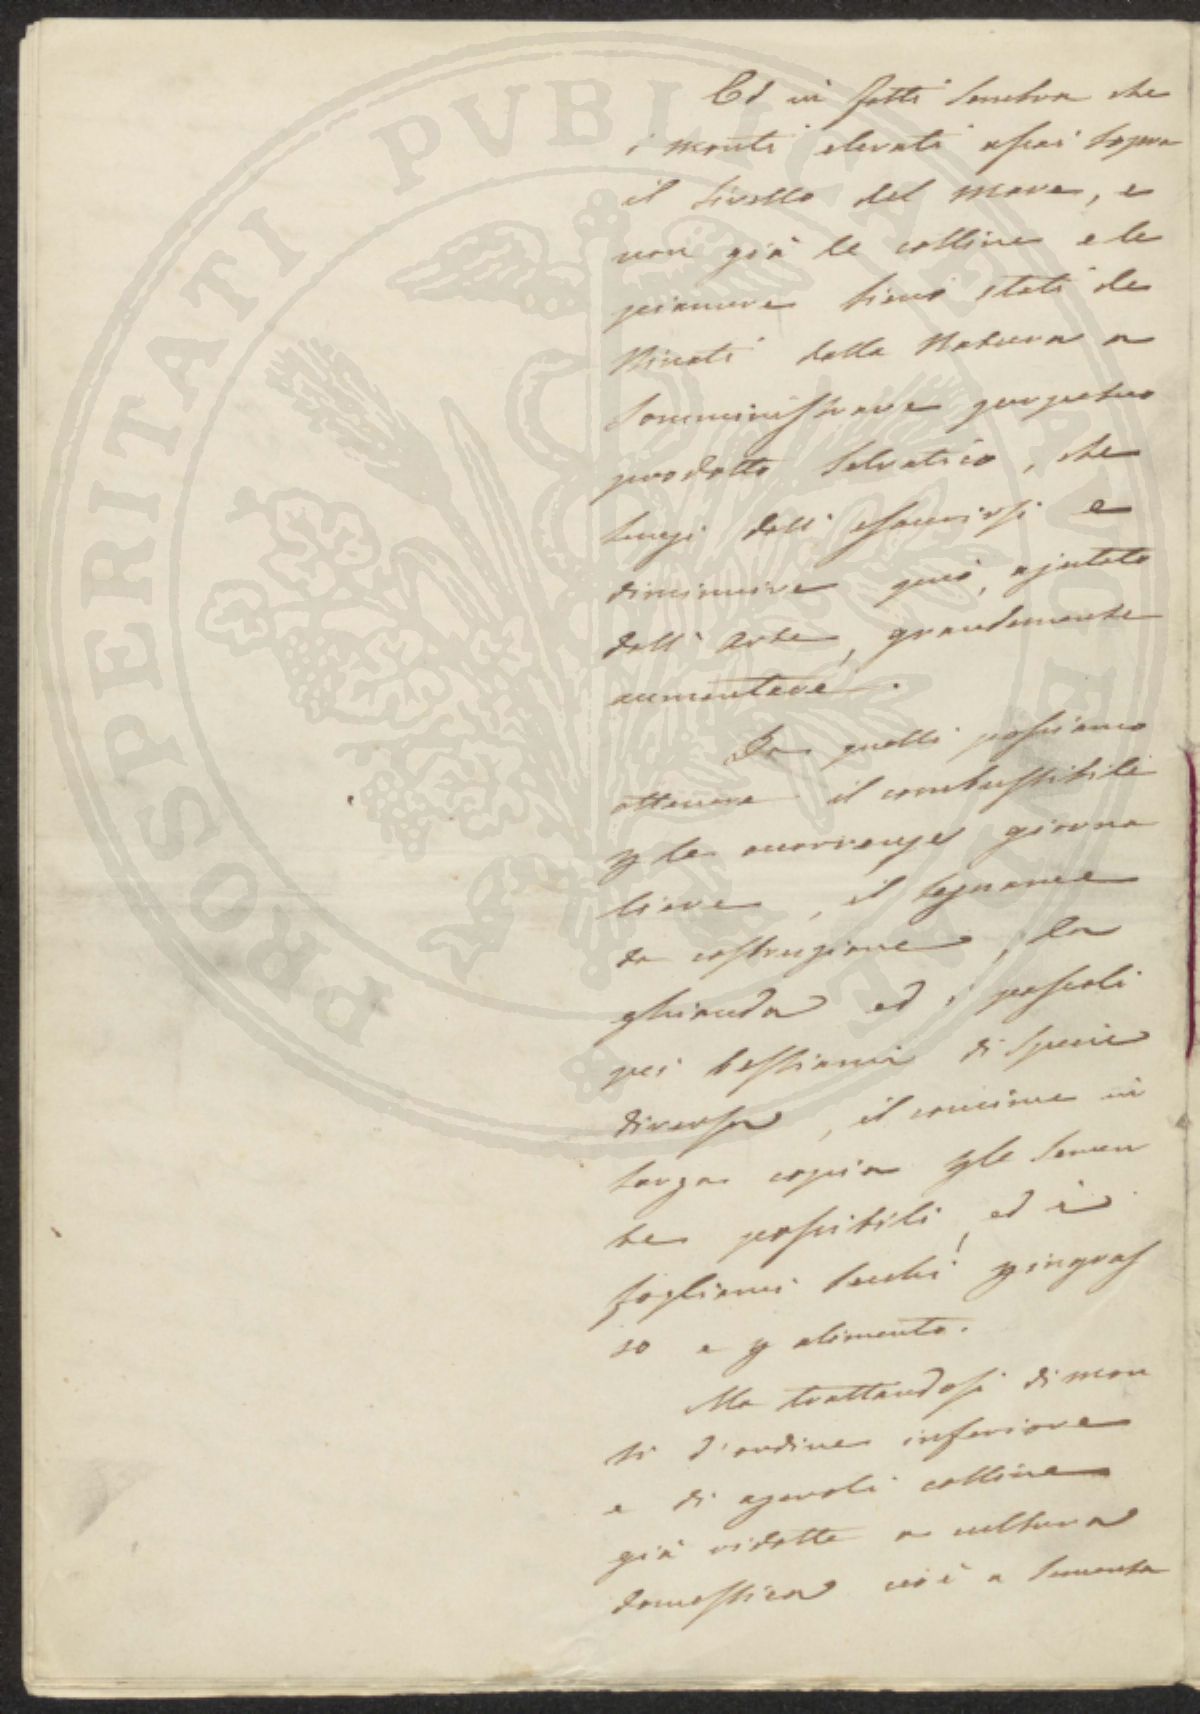 Ed in fatti sembra che
i monti elevati assai sopra
il livello del mare, e
non già le colline e le
pianure sieno stati de
stinati dalla Natura a
somministrare perpetuo
prodotto selvatico, che
lungi dall'esaurirsi e
diminuire può, ajutato
dall'Arte, grandemente
aumentare.
Da quelli possiamo
ottenere il combustibile
p le occorrenze giorna
liere, il legname
da costruzione, la
ghianda ed i pascoli
pei bestiami di specie
diversa, il concime in
larga copia p le semen
te possibili, ed i
fogliami secchi p ingras
so e p alimento.
Ma trattandosi di mon
ti d'ordine inferiore
e di agevoli colline
già ridotte a cultura
domestica cioè a sementa
PROSPERITATI PVBLICAE AVGENDAE